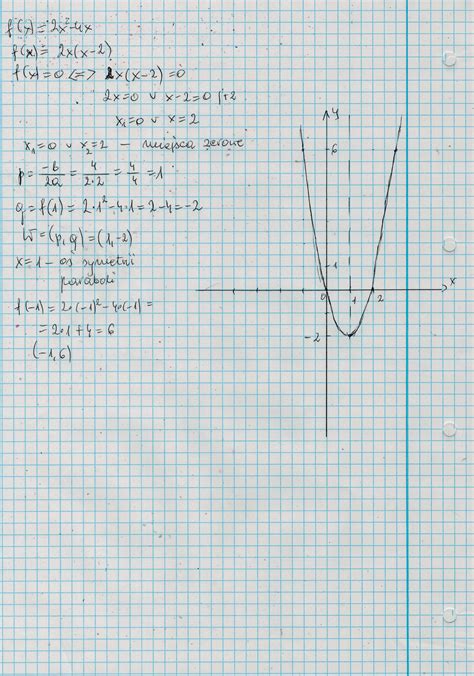 f(x)=2x²-4x
f(x)= 2x(x-2)
f(x)=0 <=> 2x(x-2)=0
2x=0 v x-2=0 /+2
x₁=0 v x=2
x₁=0 v x₂=2 — miejsca zerowe
p= -b/2a = 4/2·2 = 4/4 =1
q=f(1)= 2·1²-4·1=2-4=-2
W=(p,q)=(1,-2)
x=1- oś symetrii
paraboli
f(-1)=2·(-1)²-4·(-1)=
=2·1+4=6
(-1,6)
y
6
1
x
0
1
2
-2